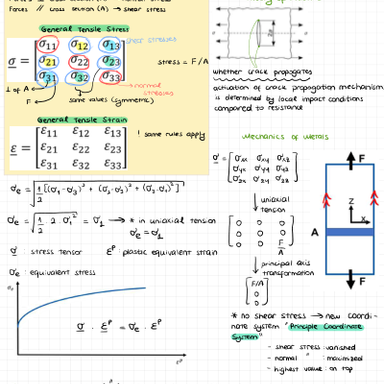 Forces // cross section (A) → shear stress
General Tensile Stress
σ = [σ11 σ12 σ13
σ21 σ22 σ23
σ31 σ32 σ33]
shear stresses
stress = F/A
⊥ of A
F
same values (symmetric)
→ normal stresses
General Tensile Strain
ε = [ε11 ε12 ε13
ε21 ε22 ε23
ε31 ε32 ε33]
! same rules apply
σe = √(1/2 [(σ1-σ2)² + (σ2-σ3)² + (σ3-σ1)²])
σe = √(1/2 · 2 · σ1²) = σ1 → * in uniaxial tension
σe = σ1
σ : stress tensor εP : plastic equivalent strain
σe : equivalent stress
σe
σ · εP = σe · εP
εP
whether crack propagates
activation of crack propagation mechanism
is determined by local impact conditions
compared to resistance
Mechanics of Metals
σ = [σxx σxy σxz
σyx σyy σyz
σzx σzy σzz]
↓ uniaxial tension
[0 0 0
0 0 0
0 0 F/A]
↓ principal axis transformation
[F/A
0
0]
F
z
x
A
F
* no shear stress → new coordi-
nate system "Principle Coordinate
System"
- shear stress : vanished
- normal " : maximized
- highest value : on top